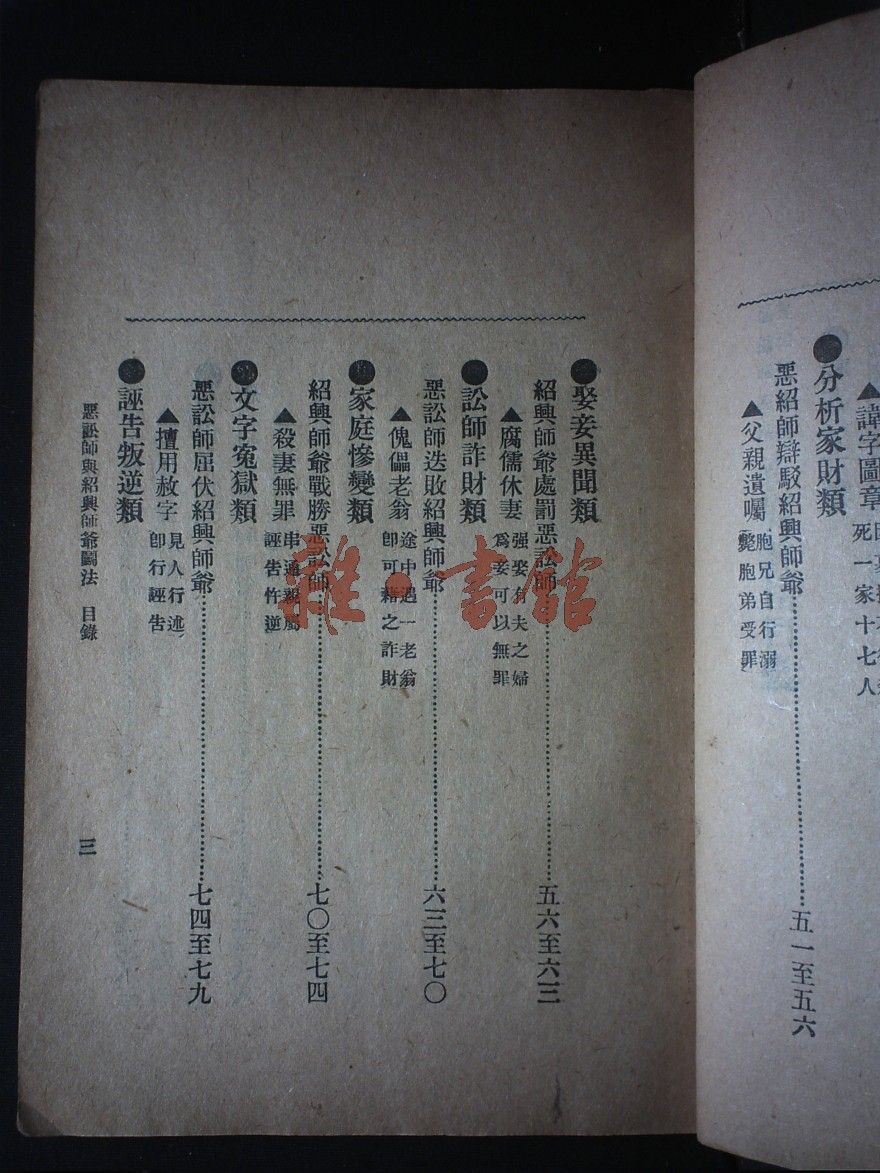 ▲諱字圖章
死一家十七人
●分析家財類
惡紹師辯駁紹興師爺……五一至五六
▲父親遺囑
胞兄自行溺
斃胞弟受罪
●娶妾異聞類
紹興師爺處罰惡訟師……五六至六三
▲腐儒休妻
强娶有夫之婦
爲妾可以無罪
●訟師詐財類
惡訟師迭敗紹興師爺……六三至七〇
▲傀儡老翁
途中遇一老翁
卽可藉之詐財
●家庭慘變類
紹興師爺戰勝惡訟師……七〇至七四
▲殺妻無罪
串通親屬
誣告忤逆
●文字寃獄類
惡訟師屈伏紹興師爺……七四至七九
▲擅用赦字
見人行述
卽行誣告
●誣告叛逆類
惡訟師與紹興師爺鬭法 目錄
三
雜·書館